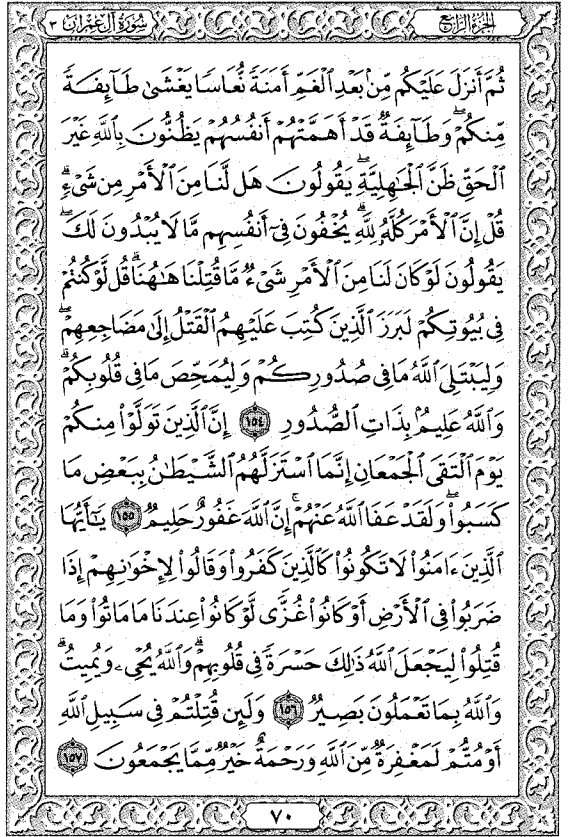 سُورَةُ آلِ عِمْرَانَ ٣
الجُزْءُ الرَّابِعُ
ثُمَّ أَنزَلَ عَلَيْكُم مِّنۢ بَعْدِ ٱلْغَمِّ أَمَنَةً نُّعَاسًا يَغْشَىٰ طَآئِفَةً
مِّنكُمْ ۖ وَطَآئِفَةٌ قَدْ أَهَمَّتْهُمْ أَنفُسُهُمْ يَظُنُّونَ بِٱللَّهِ غَيْرَ
ٱلْحَقِّ ظَنَّ ٱلْجَٰهِلِيَّةِ ۖ يَقُولُونَ هَل لَّنَا مِنَ ٱلْأَمْرِ مِن شَىْءٍ ۗ
قُلْ إِنَّ ٱلْأَمْرَ كُلَّهُۥ لِلَّهِ ۗ يُخْفُونَ فِىٓ أَنفُسِهِم مَّا لَا يُبْدُونَ لَكَ ۖ
يَقُولُونَ لَوْ كَانَ لَنَا مِنَ ٱلْأَمْرِ شَىْءٌ مَّا قُتِلْنَا هَٰهُنَا ۗ قُل لَّوْ كُنتُمْ
فِى بُيُوتِكُمْ لَبَرَزَ ٱلَّذِينَ كُتِبَ عَلَيْهِمُ ٱلْقَتْلُ إِلَىٰ مَضَاجِعِهِمْ ۖ
وَلِيَبْتَلِىَ ٱللَّهُ مَا فِى صُدُورِكُمْ وَلِيُمَحِّصَ مَا فِى قُلُوبِكُمْ ۗ
وَٱللَّهُ عَلِيمٌۢ بِذَاتِ ٱلصُّدُورِ ١٥٤ إِنَّ ٱلَّذِينَ تَوَلَّوْا۟ مِنكُمْ
يَوْمَ ٱلْتَقَى ٱلْجَمْعَانِ إِنَّمَا ٱسْتَزَلَّهُمُ ٱلشَّيْطَٰنُ بِبَعْضِ مَا
كَسَبُوا۟ ۖ وَلَقَدْ عَفَا ٱللَّهُ عَنْهُمْ ۗ إِنَّ ٱللَّهَ غَفُورٌ حَلِيمٌ ١٥٥ يَٰٓأَيُّهَا
ٱلَّذِينَ ءَامَنُوا۟ لَا تَكُونُوا۟ كَٱلَّذِينَ كَفَرُوا۟ وَقَالُوا۟ لِإِخْوَٰنِهِمْ إِذَا
ضَرَبُوا۟ فِى ٱلْأَرْضِ أَوْ كَانُوا۟ غُزًّى لَّوْ كَانُوا۟ عِندَنَا مَا مَاتُوا۟ وَمَا
قُتِلُوا۟ لِيَجْعَلَ ٱللَّهُ ذَٰلِكَ حَسْرَةً فِى قُلُوبِهِمْ ۗ وَٱللَّهُ يُحْىِۦ وَيُمِيتُ ۗ
وَٱللَّهُ بِمَا تَعْمَلُونَ بَصِيرٌ ١٥٦ وَلَئِن قُتِلْتُمْ فِى سَبِيلِ ٱللَّهِ
أَوْ مُتُّمْ لَمَغْفِرَةٌ مِّنَ ٱللَّهِ وَرَحْمَةٌ خَيْرٌ مِّمَّا يَجْمَعُونَ ١٥٧
٧٠